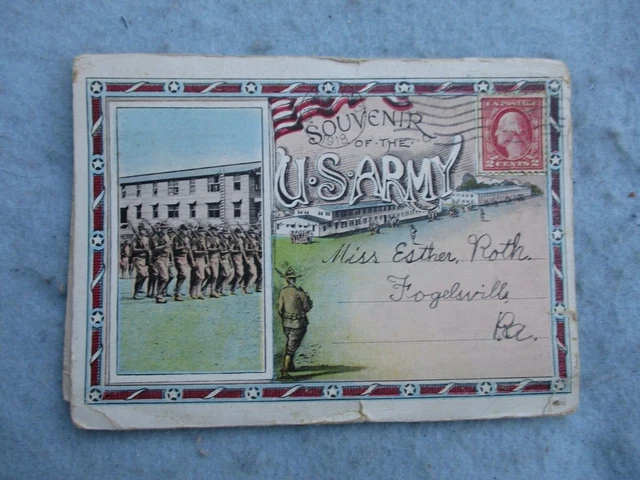 SOUVENIR
OF·THE·
U·S·ARMY
1918
U.S. POSTAGE
2 CENTS 2
Miss Esther Roth.
Fogelsville
Pa.